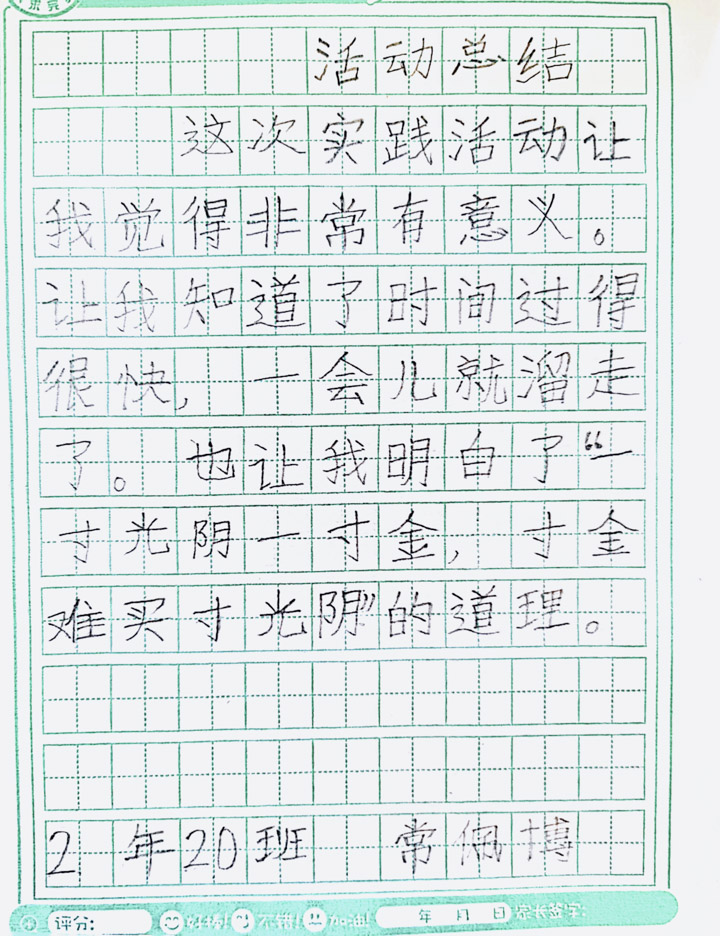 活动总结
这次实践活动让
我觉得非常有意义。
让我知道了时间过得
很快，一会儿就溜走
了。也让我明白了“一
寸光阴一寸金，寸金
难买寸光阴”的道理。
2年20班 常佩博
评分: 好棒! 不错! 加油! 年 月 日 家长签字: